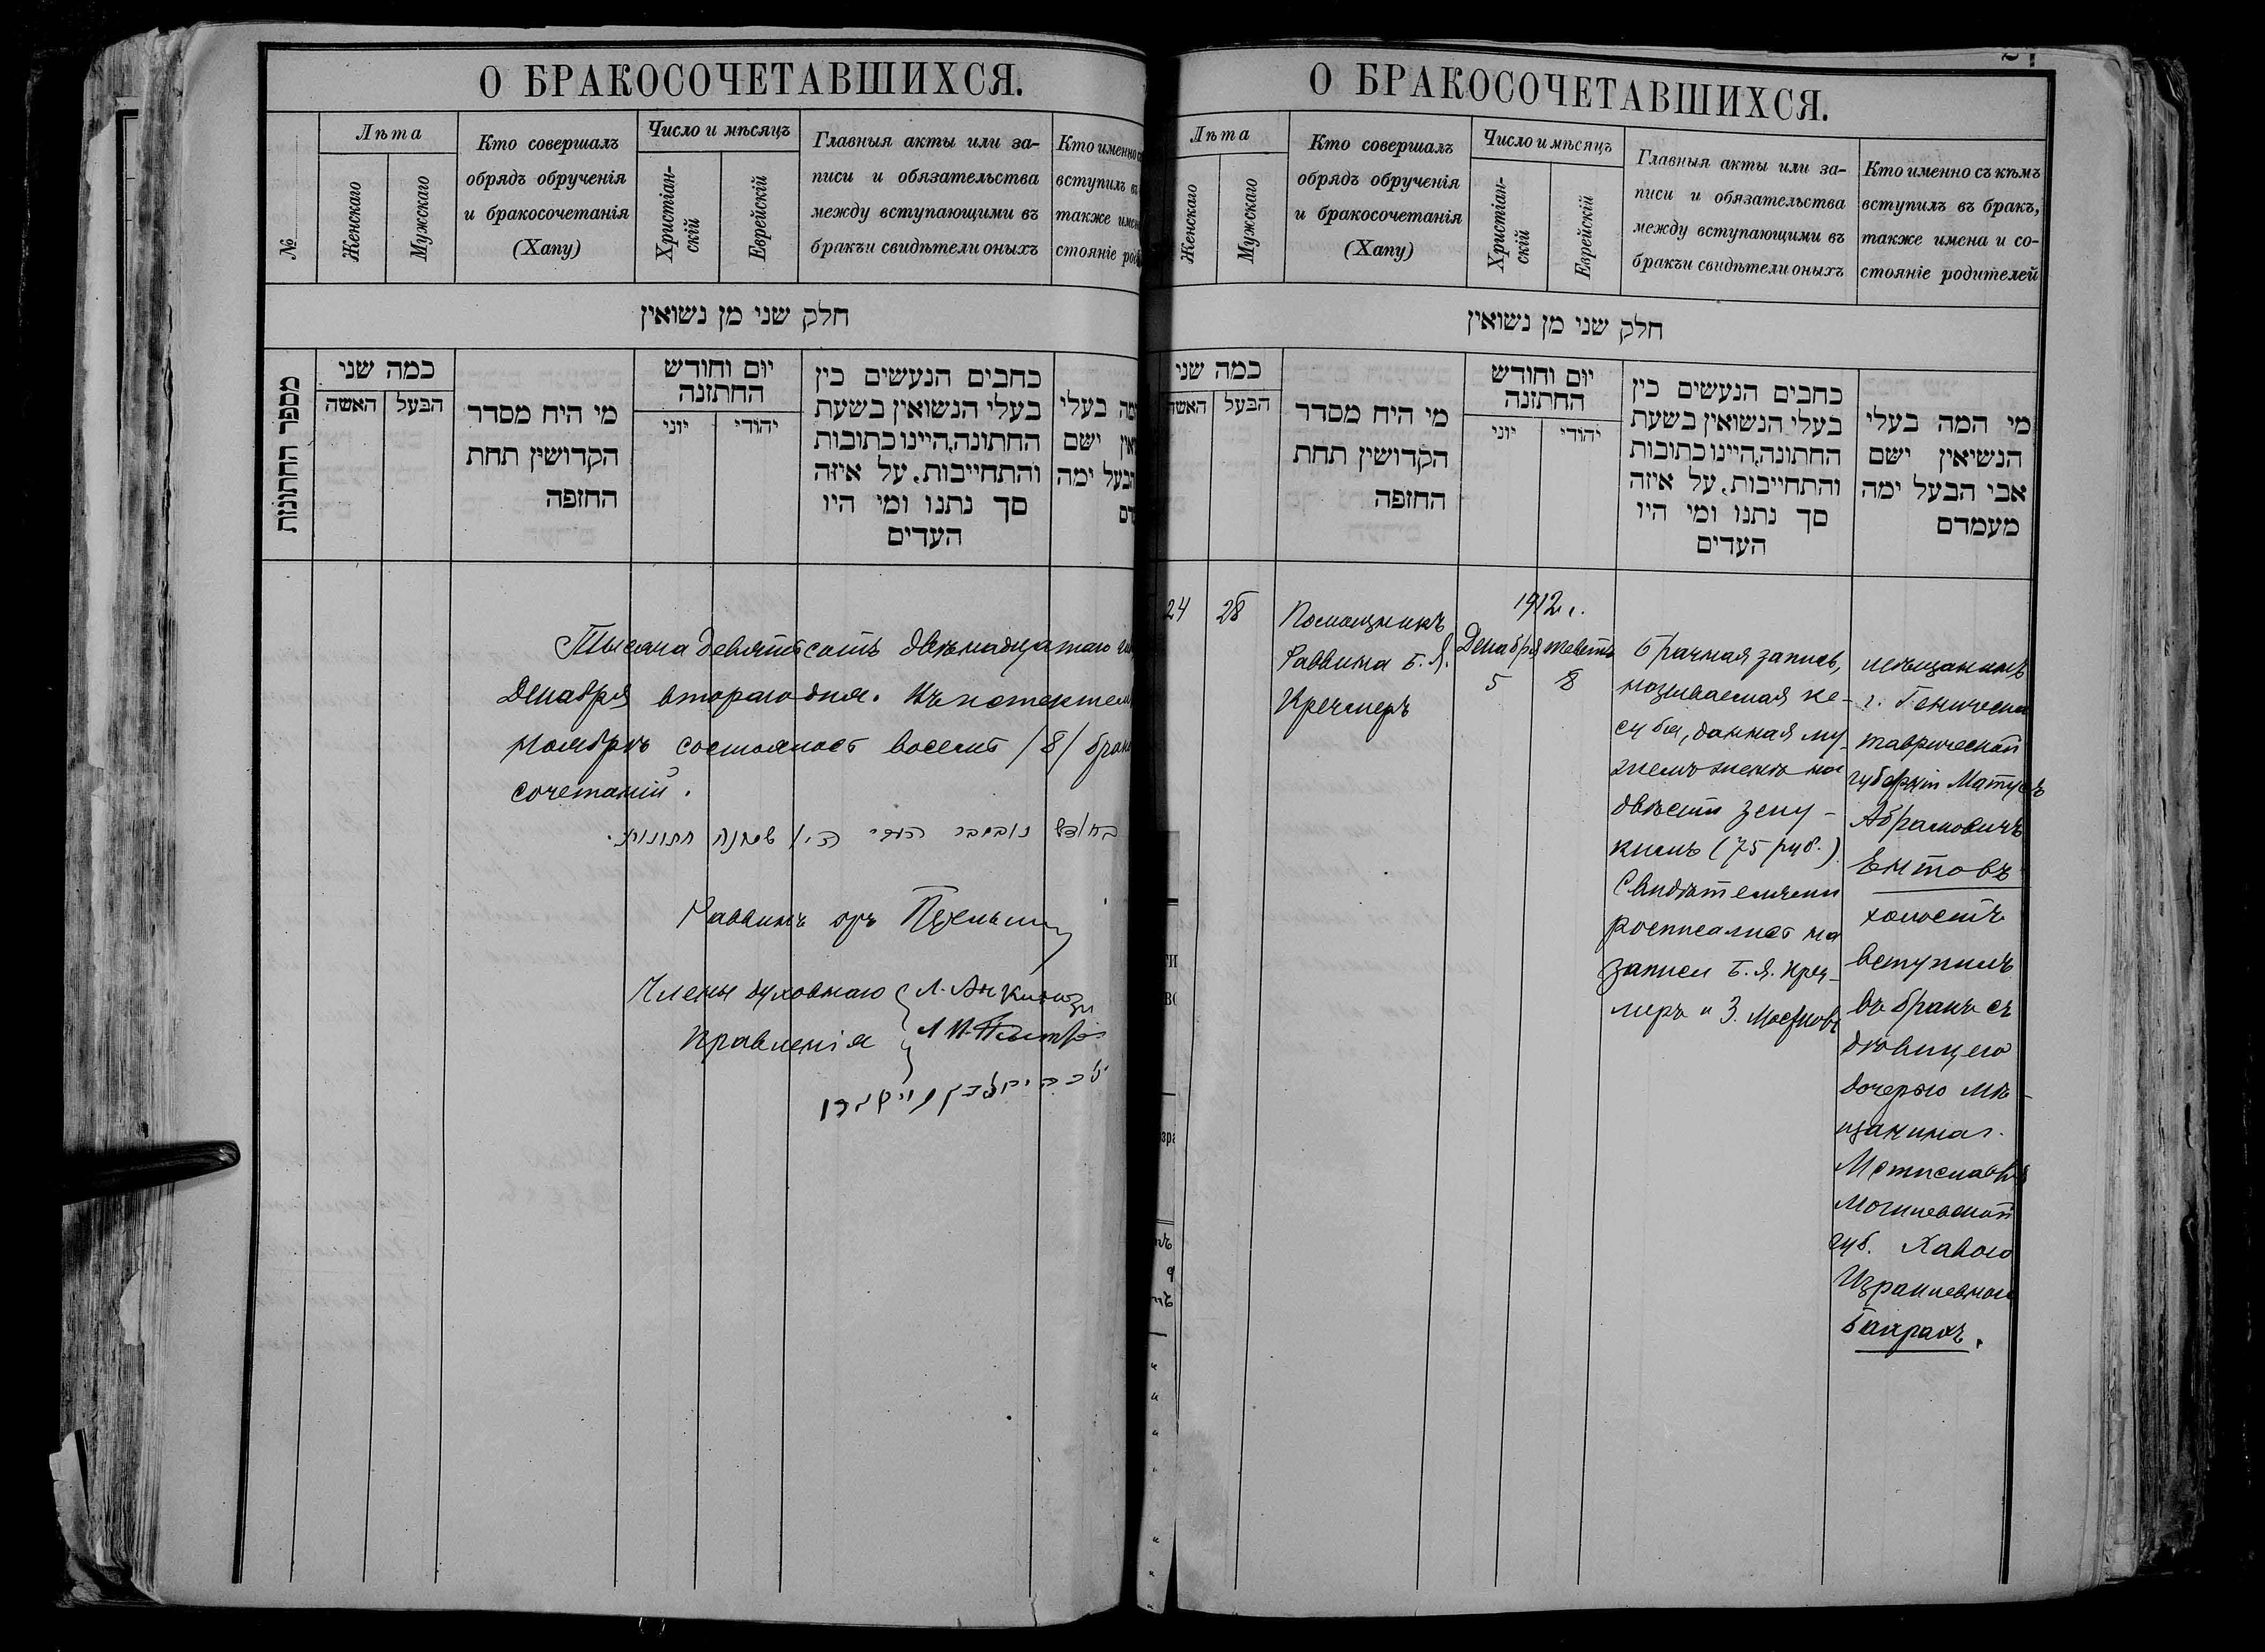 О БРАКОСОЧЕТАВШИХСЯ.
№
Лѣта
Женскаго
Мужскаго
Кто совершалъ
обрядъ обрученія
и бракосочетанія
(Хапу)
Число и мѣсяцъ
Христіан-
скій
Еврейскій
Главныя акты или за-
писи и обязательства
между вступающими въ
бракъи свидѣтели оныхъ
Кто именно
вступилъ въ
также
стояніе
חלק שני מן נשואין
מספר החתונות
כמה שני
הבעל האשה
מי היה מסדר
הקדושין תחת
החופה
יום וחודש
החתונה
יהודי יוני
כתבים הנעשים בין
בעלי הנשואין בשעת
החתונה,היינו כתובות
והתחייבות, על איזה
סך נתנו ומי היו
העדים
המה בעלי
ישם
הבעל ימה
Тысяча девятьсотъ двѣнадцатаго
Декабря второго дня. Въ истекшемъ
Ноябрѣ состоялось восемь /8/ брако
сочетаній.
בחודש נובעמבר היו שמנה חתונות.
Раввинъ
Члены духовнаго
Правленія
О БРАКОСОЧЕТАВШИХСЯ.
Лѣта
Женскаго
Мужскаго
Кто совершалъ
обрядъ обрученія
и бракосочетанія
(Хапу)
Число и мѣсяцъ
Христіан-
скій
Еврейскій
Главныя акты или за-
писи и обязательства
между вступающими въ
бракъи свидѣтели оныхъ
Кто именно съ кѣмъ
вступилъ въ бракъ,
также имена и со-
стояніе родителей
חלק שני מן נשואין
כמה שני
הבעל האשה
מי היה מסדר
הקדושין תחת
החופה
יום וחודש
החתונה
יהודי יוני
כתבים הנעשים בין
בעלי הנשואין בשעת
החתונה,היינו כתובות
והתחייבות, על איזה
סך נתנו ומי היו
העדים
מי המה בעלי
הנשיאין ישם
אבי הבעל ימה
מעמדם
24
28
Помощникъ
Раввина Б. Я.
Кречмеръ
1912 г.
Декабря
5
Теветъ
8
Брачная запись,
называемая ке-
суба, данная му-
жемъ женѣ на
двѣсти зеху-
кимъ (75 руб.)
Свидѣтелями
росписались на
записи Б. Я. Креч-
меръ и З.
мѣщанинъ
г. Геническа
таврической
губерніи Матусъ
Абрамовичъ
Ентовъ
холостъ
вступилъ
въ бракъ съ
дѣвицею
дочерью мѣ-
щанина г.
Мстиславля
Могилевской
губ. Хавою
Израилевною
Бахрахъ.